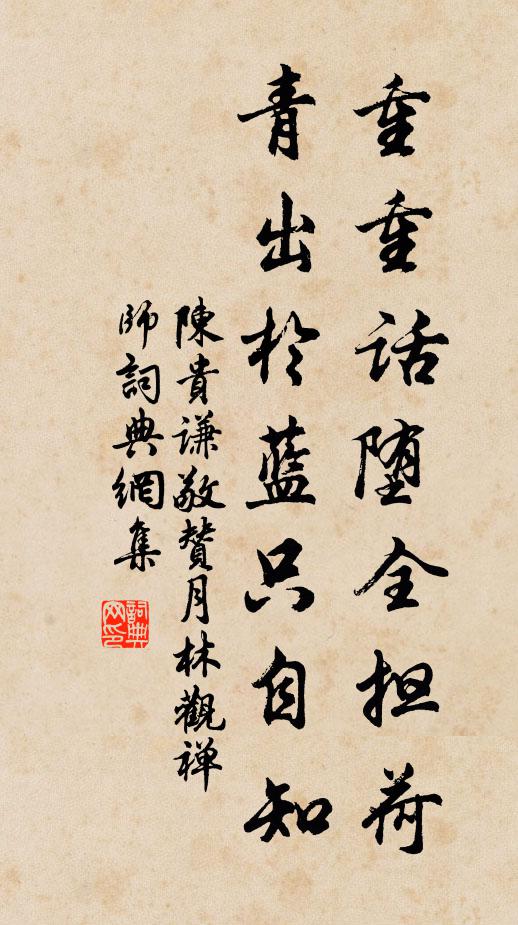 重重話堕全担荷
青出於藍只自知
陳貴謙敬贊月林觀禅
師詞典網集
詞典网印